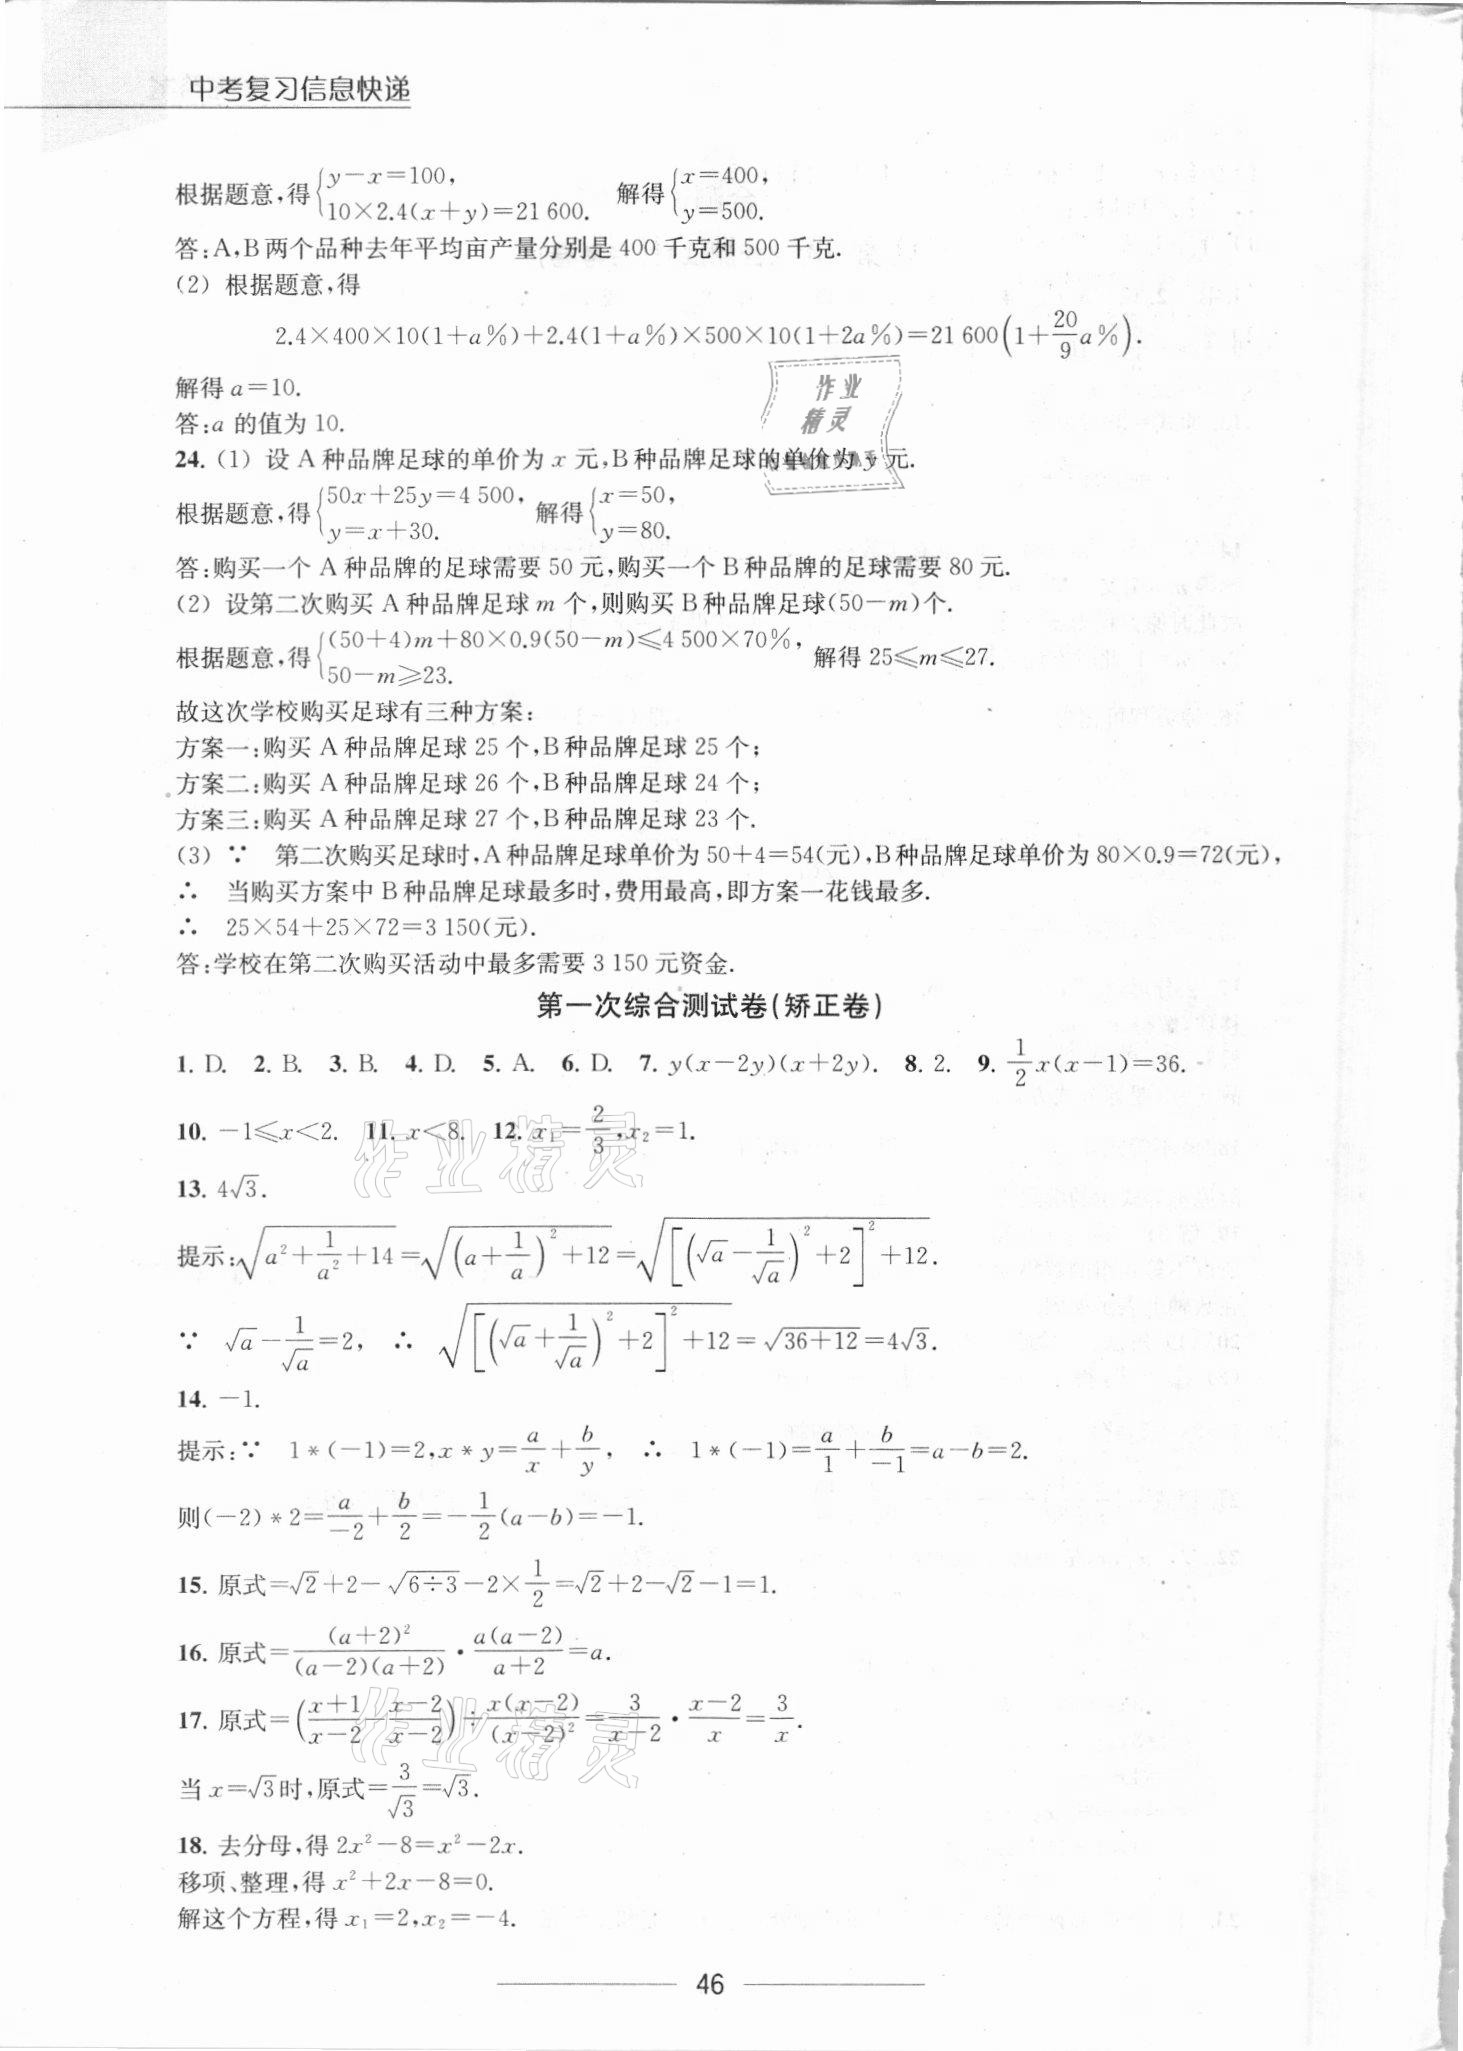 中考复习信息快递
根据题意,得{y-x=100, 10×2.4(x+y)=21 600. 解得{x=400, y=500.
答:A,B两个品种去年平均亩产量分别是 400 千克和 500 千克.
(2) 根据题意,得
2.4×400×10(1+a%)+2.4(1+a%)×500×10(1+2a%)=21 600(1+20/9 a%).
解得 a=10.
答:a 的值为 10.
24. (1) 设 A 种品牌足球的单价为 x 元,B 种品牌足球的单价为 y 元.
根据题意,得{50x+25y=4 500, y=x+30. 解得{x=50, y=80.
答:购买一个 A 种品牌的足球需要 50 元,购买一个 B 种品牌的足球需要 80 元.
(2) 设第二次购买 A 种品牌足球 m 个,则购买 B 种品牌足球(50-m)个.
根据题意,得{(50+4)m+80×0.9(50-m)≤4 500×70%, 50-m≥23. 解得 25≤m≤27.
故这次学校购买足球有三种方案:
方案一:购买 A 种品牌足球 25 个,B 种品牌足球 25 个;
方案二:购买 A 种品牌足球 26 个,B 种品牌足球 24 个;
方案三:购买 A 种品牌足球 27 个,B 种品牌足球 23 个.
(3) ∵ 第二次购买足球时,A 种品牌足球单价为 50+4=54(元),B 种品牌足球单价为 80×0.9=72(元),
∴ 当购买方案中 B 种品牌足球最多时,费用最高,即方案一花钱最多.
∴ 25×54+25×72=3 150(元).
答:学校在第二次购买活动中最多需要 3 150 元资金.
第一次综合测试卷(矫正卷)
1. D. 2. B. 3. B. 4. D. 5. A. 6. D. 7. y(x-2y)(x+2y). 8. 2. 9. 1/2 x(x-1)=36.
10. -1≤x<2. 11. x<8. 12. x₁=2/3,x₂=1.
13. 4√3.
提示:√(a²+1/a²+14)=√((a+1/a)²+12)=√([(√a-1/√a)²+2]²+12).
∵ √a-1/√a=2, ∴ √([(√a+1/√a)²+2]²+12)=√(36+12)=4√3.
14. -1.
提示:∵ 1*(-1)=2,x*y=a/x+b/y, ∴ 1*(-1)=a/1+b/-1=a-b=2.
则(-2)*2=a/-2+b/2=-1/2(a-b)=-1.
15. 原式=√2+2-√(6÷3)-2×1/2=√2+2-√2-1=1.
16. 原式=(a+2)²/(a-2)(a+2)·a(a-2)/a+2=a.
17. 原式=(x+1/x-2-x-2/x-2)÷x(x-2)/(x-2)²=3/x-2·x-2/x=3/x.
当 x=√3时,原式=3/√3=√3.
18. 去分母,得 2x²-8=x²-2x.
移项、整理,得 x²+2x-8=0.
解这个方程,得 x₁=2,x₂=-4.
46
作业精灵
作业精灵
作业
精灵